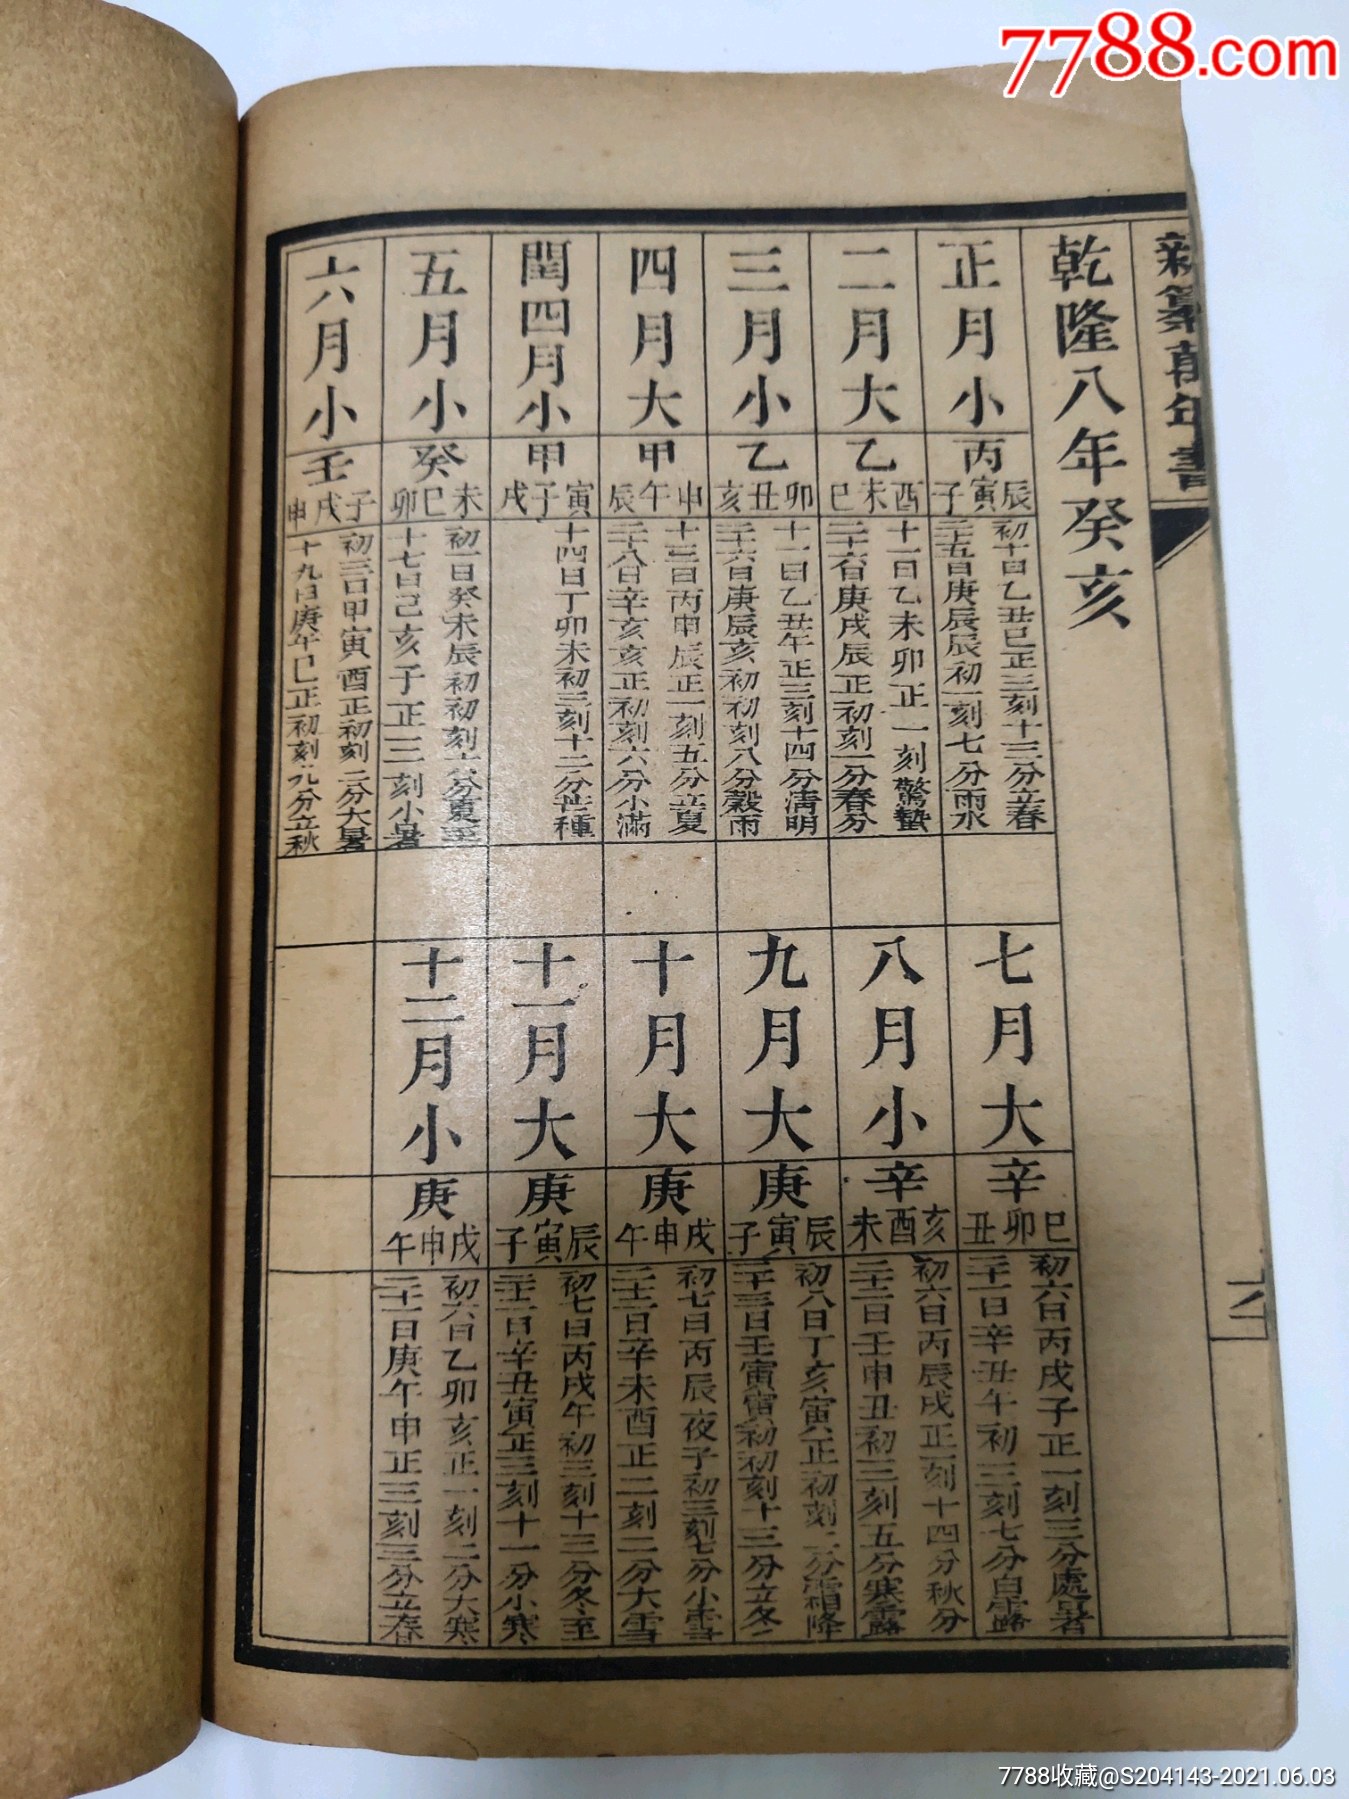 7788.com
新纂萬年書
乾隆八年癸亥
正月小
丙
辰寅子
初十日乙丑巳正三刻十三分立春
二十五日庚辰辰初一刻七分雨水
二月大
乙
酉未巳
十一日乙未卯正一刻驚蟄
二十六日庚戌辰正初刻一分春分
三月小
乙
卯丑亥
十一日乙丑午正三刻十四分清明
二十六日庚辰亥初初刻八分穀雨
四月大
甲
申午辰
十三日丙申辰正一刻五分立夏
二十八日辛亥亥正初刻六分小滿
閏四月小
甲
寅子戌
十四日丁卯未初三刻十二分芒種
五月小
癸
未巳卯
初一日癸未辰初初刻 分夏至
十七日己亥子正三刻小暑
六月小
壬
子戌申
初三日甲寅酉正初刻二分大暑
十九日庚午巳正初刻九分立秋
七月大
辛
巳卯丑
初六日丙戌子正一刻三分處暑
二十一日辛丑午初三刻七分白露
八月小
辛
亥酉未
初六日丙辰戌正一刻十四分秋分
二十二日壬申丑初三刻五分寒露
九月大
庚
辰寅子
初八日丁亥寅正初刻二分霜降
二十三日壬寅寅初初刻十三分立冬
十月大
庚
戌申午
初七日丙辰夜子初三刻七分小雪
二十二日辛未酉正二刻二分大雪
十一月大
庚
辰寅子
初七日丙戌午初三刻十三分冬至
二十二日辛丑寅正三刻十一分小寒
十二月小
庚
戌申午
初六日乙卯亥正一刻二分大寒
二十一日庚午申正三刻三分立春
7788收藏@S204143-2021.06.03